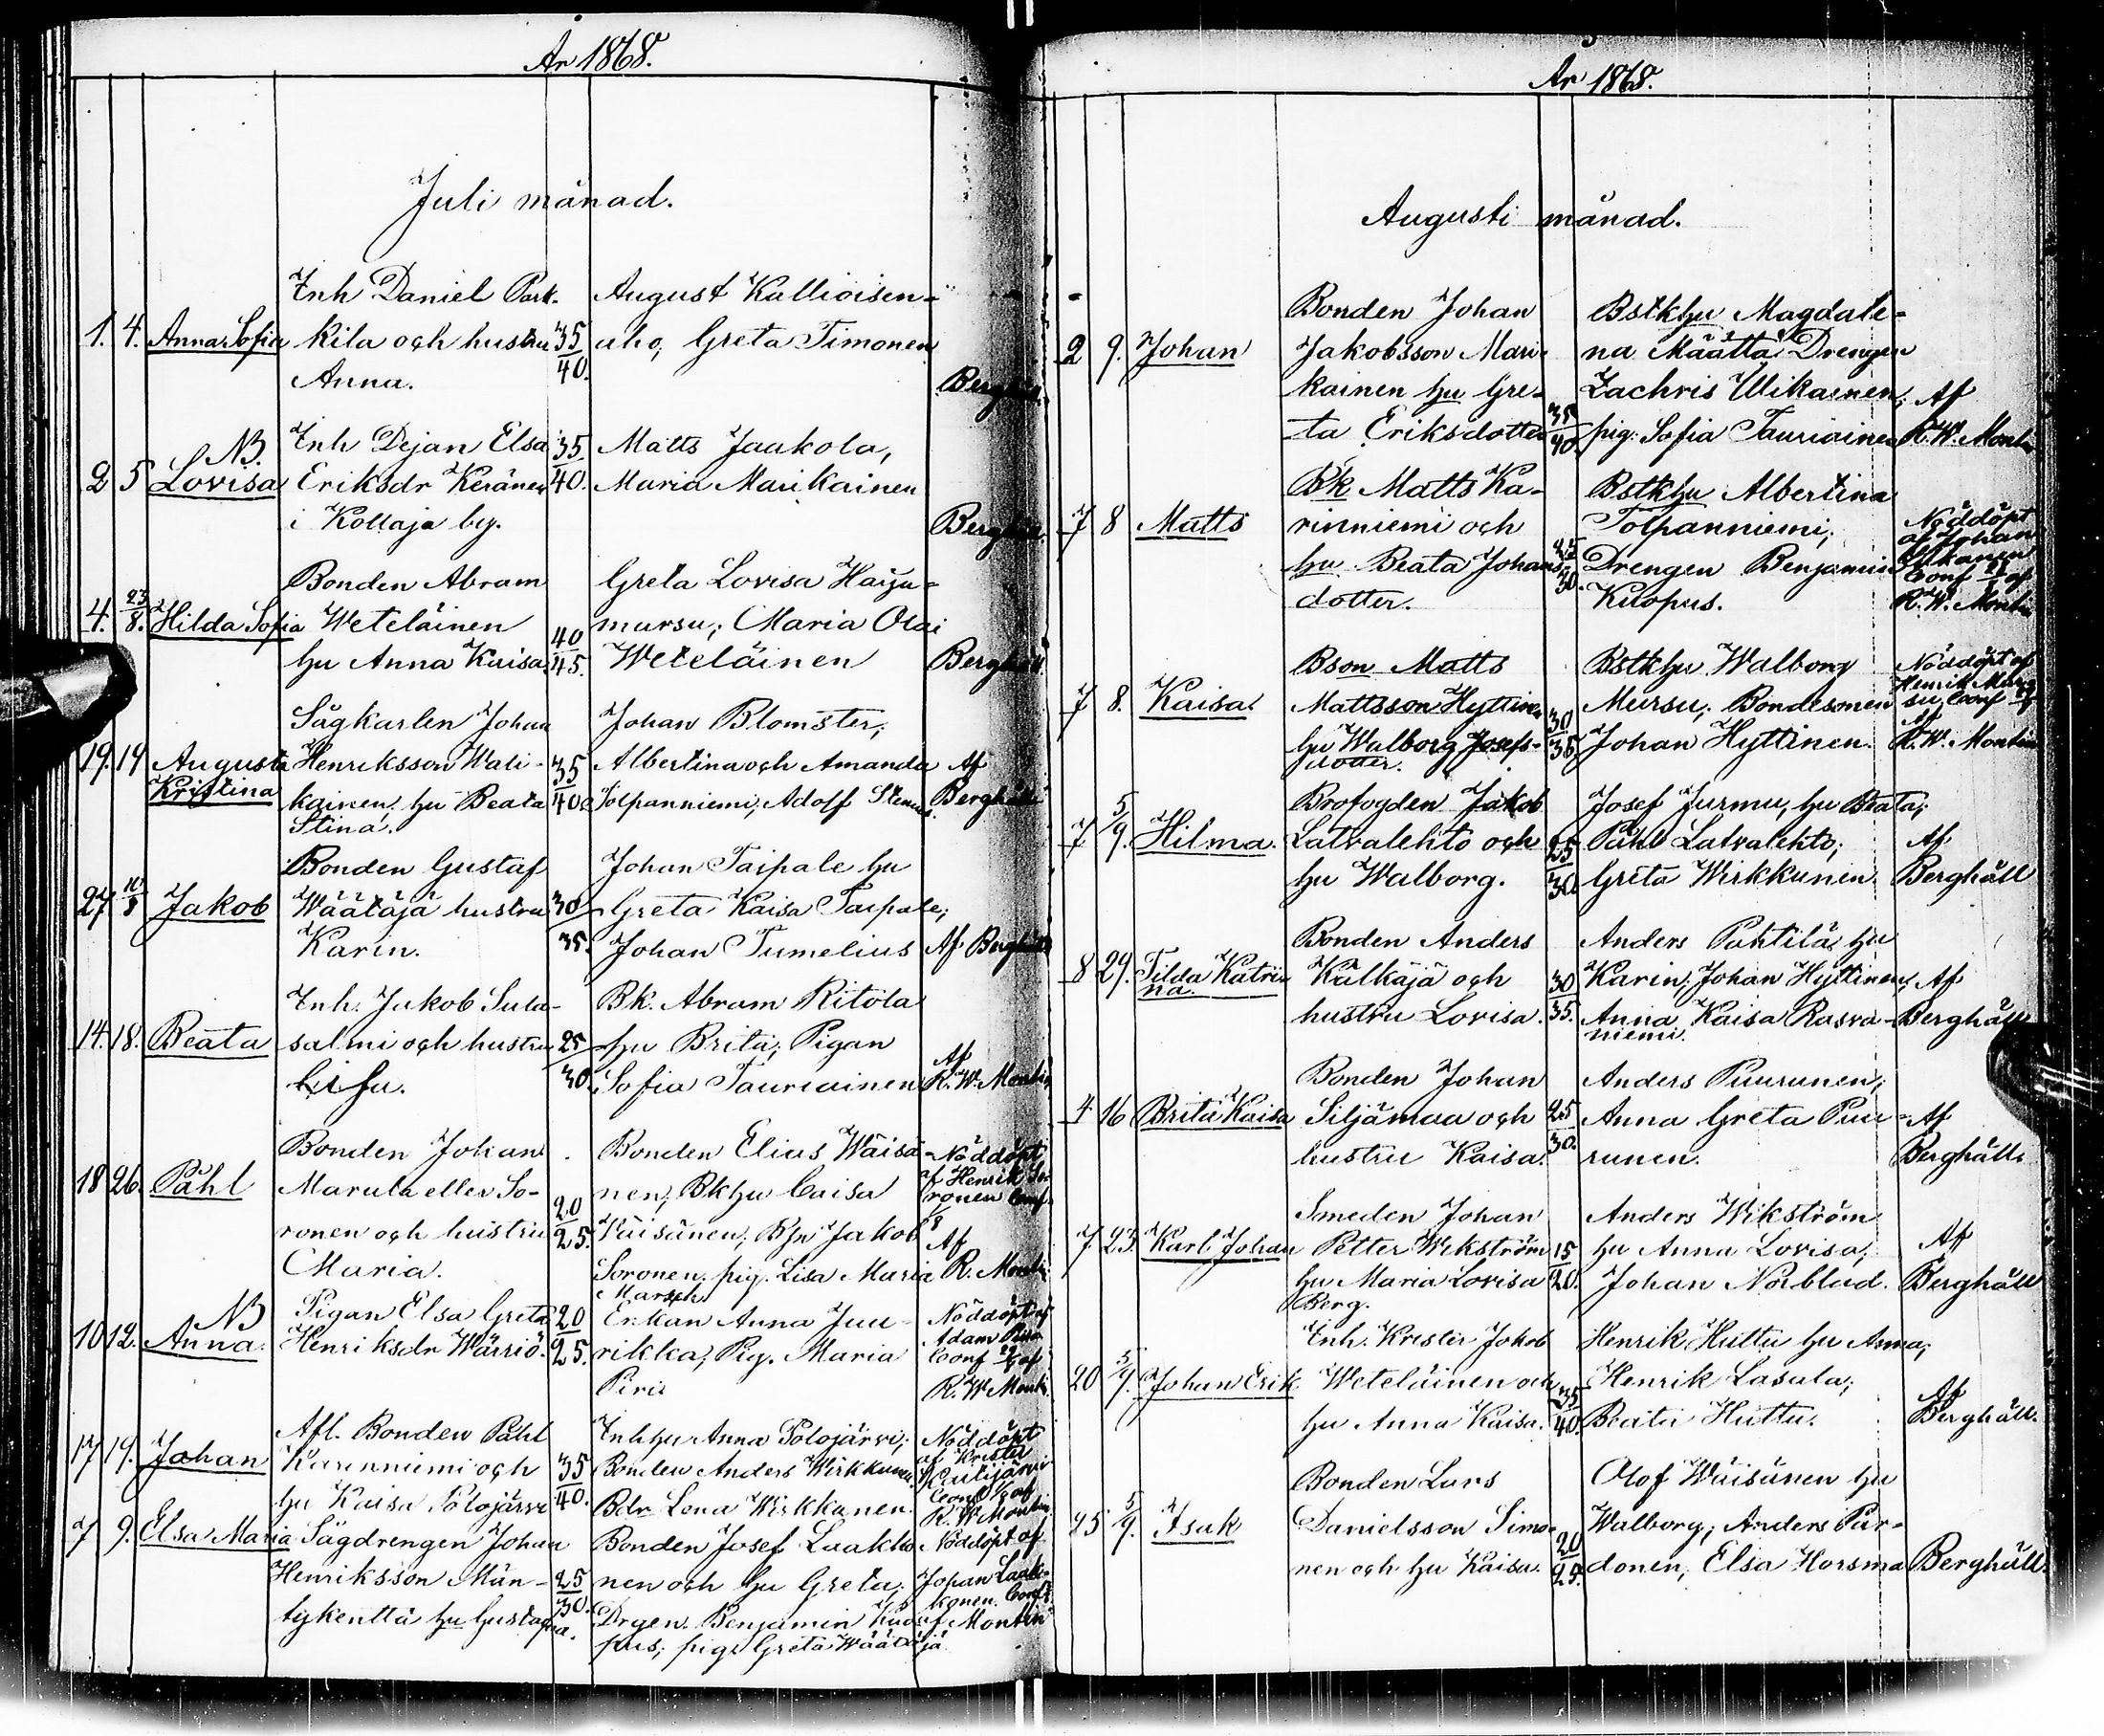 År 1868.
Juli månad.
Inh Daniel Park- August Kallioisen-
1. 4. Anna Sofia kila och hustru 35/40. aho, Greta Timonen
Anna. Berghäll
NB. Inh Dejan Elsa 35/40. Matts Jaakola,
2 5 Lovisa Eriksdr Keränen Maria Marikainen
i Kollaja by. Berghäll
Bonden Abram Greta Lovisa Harju-
4. 23/8. Hilda Sofia Weteläinen 40/45. mursu; Maria Olai
hu Anna Kaisa Weteläinen Berghäll
Sågkarlen Johan Johan Blomster,
19. 19 Augusta Henriksson Wali- 35/40 Albertina och Amanda Af
Kristina kainen, hu Beata Tolpanniemi, Adolf Berghäll
Stina.
Bonden Gustaf Johan Taipale hu
27 10/8 Jakob Wäätäjä hustru 30/35. Greta Kaisa Taipale;
Karin. Johan Tumelius Af Berghäll
Inh. Jakob Sula- Bk. Abram Ritola
14. 18. Beata salmi och hustru 25/30. hu Brita; Pigan Af
Lisa. Sofia Tauriainen R. W. Montin
Bonden Johan Bonden Elias Wäisä- Nöddöpt
18 26. Påhl Marula eller So- 20/25. nen, Bkhu Caisa af Henrik So-
ronen och hustru Wäisänen; Jakob ronen Conf.
Maria. Soronen, pig. Lisa Maria Af R. Montin
Marsch
NB Pigan Elsa Greta 20/25. Enkan Anna Juu- Nöddöpt af
10 12. Anna Henriksdr Wärriö. rikka; Pig. Maria Adam
Conf af
Piri R. W Montin
Afl. Bonden Påhl Inhhu Anna Polojärvi; Nöddöpt
17 19. Johan Karinniemi och 35/40. Bonden Anders Wirkkunen af Krister
hu Kaisa Polojärvi Bdr Lena Wirkkunen. Conf af
R. W Montin
7 9. Elsa Maria Sågdrengen Johan Bonden Josef Laakko- Nöddöpt af
Henriksson Män- 25/30. nen och hu Greta; Johan Laak-
konen. Conf.
tykenttä hu Gustafva. Drgen. Benjamin Kuo- af Montin
pus; pig. Greta Wäätäjä
År 1868.
Augusti månad.
Bonden Johan Bstkhu Magdale-
2 9. Johan Jakobsson Mari- na Määttä Drengen
kainen hu Gre- Zachris Wikainen; Af
ta Eriksdotter 35/40. pig: Sofia Tauriainen R. W. Montin
Bk Matts Ka- Bstkhu Albertina
7 8 Matts rinniemi och Tolpanniemi; Nöddöpt
af Johan
hu Beata Johans- Drengen Benjamin Conf af
dotter. Kuopus. R. W. Montin
Bson Matts Bstkhu Walborg Nöddöpt af
7 8. Kaisa Mattsson Hyttinen 30/35 Mursu; Bondesonen Henrik Mur-
su, Conf Af
hu Walborg Josefs- Johan Hyttinen. R. W. Montin
dotter.
Brofogden Jakob Josef Jurmu, hu Beata;
7 5/9. Hilma. Latvalehto och 25/30. Påhl Latvalehto; Af
hu Walborg. Greta Wirkkunen Berghäll
Bonden Anders Anders Pahtila hu
8 29. Tilda Katri- Kälkäjä och 30/35. Karin; Johan Hyttinen; Af
na. hustru Lovisa. Anna Kaisa Rasva- Berghäll
niemi.
Bonden Johan Anders Puurunen;
4 16 Brita Kaisa Siljämaa och 25/30. Anna Greta Puu- Af
hustru Kaisa. runen. Berghäll
Smeden Johan Anders Wikström
7 23. Karl Johan Petter Wikström 15/20. hu Anna Lovisa; Af
hu Maria Lovisa Johan Norblad. Berghäll
Berg.
Inh. Krister Jakob Henrik Huttu hu Anna;
20 5/9. Johan Erik Weteläinen och 35/40. Henrik Lasala; Af
hu Anna Kaisa. Beata Huttu. Berghäll.
Bonden Lars Olof Wäisänen hu
25 5/9. Isak Danielsson Simo- 20/25. Walborg; Anders Par-
nen och hu Kaisa. donen, Elsa Horsma Berghäll.